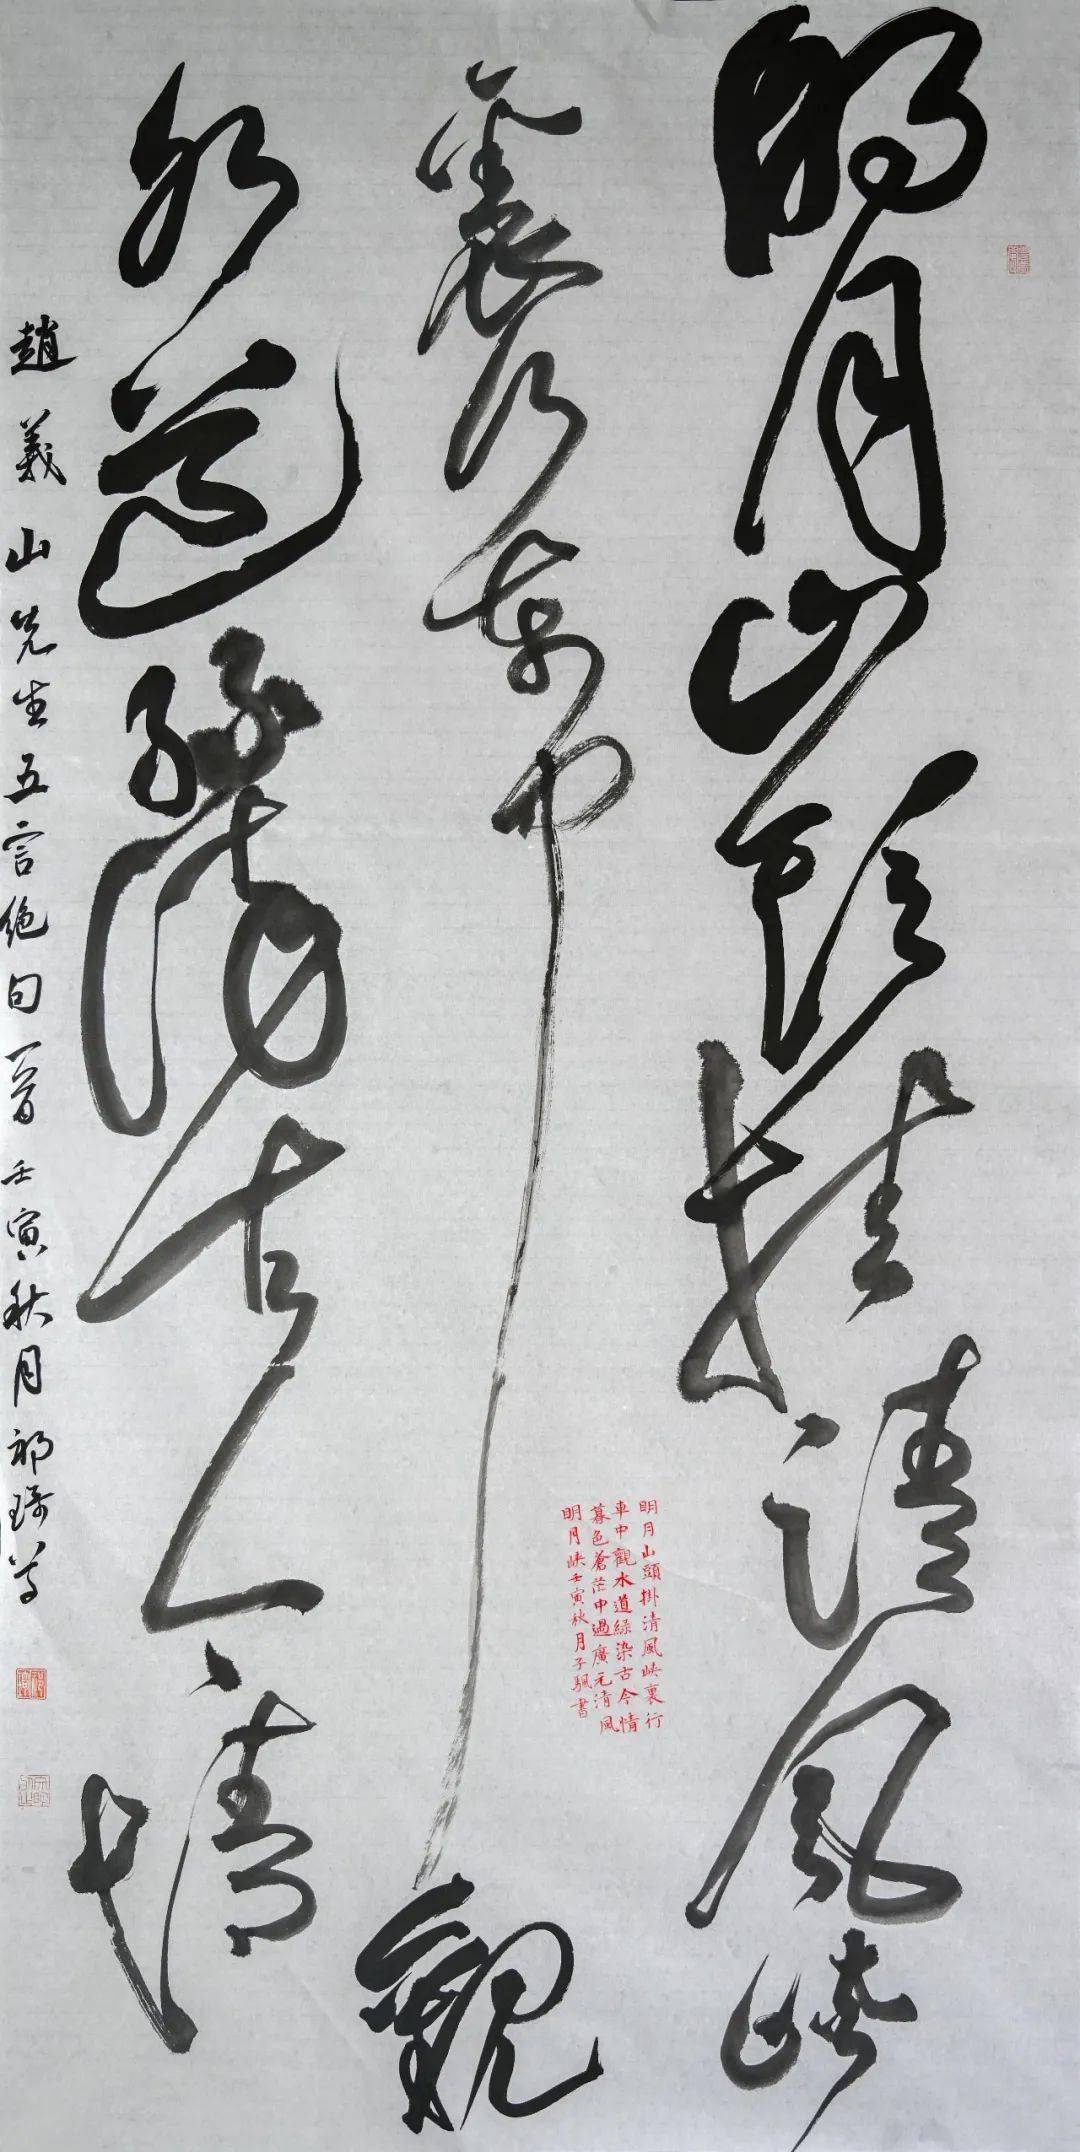 明月山頭挂清風峽
裏行車中觀
水道綠染古今情
趙義山先生五言絕句一首壬寅秋月祁
明月山頭掛清風峽裏行
車中觀水道綠染古今情
暮色蒼茫中過廣元清風
明月峽壬寅秋月子書